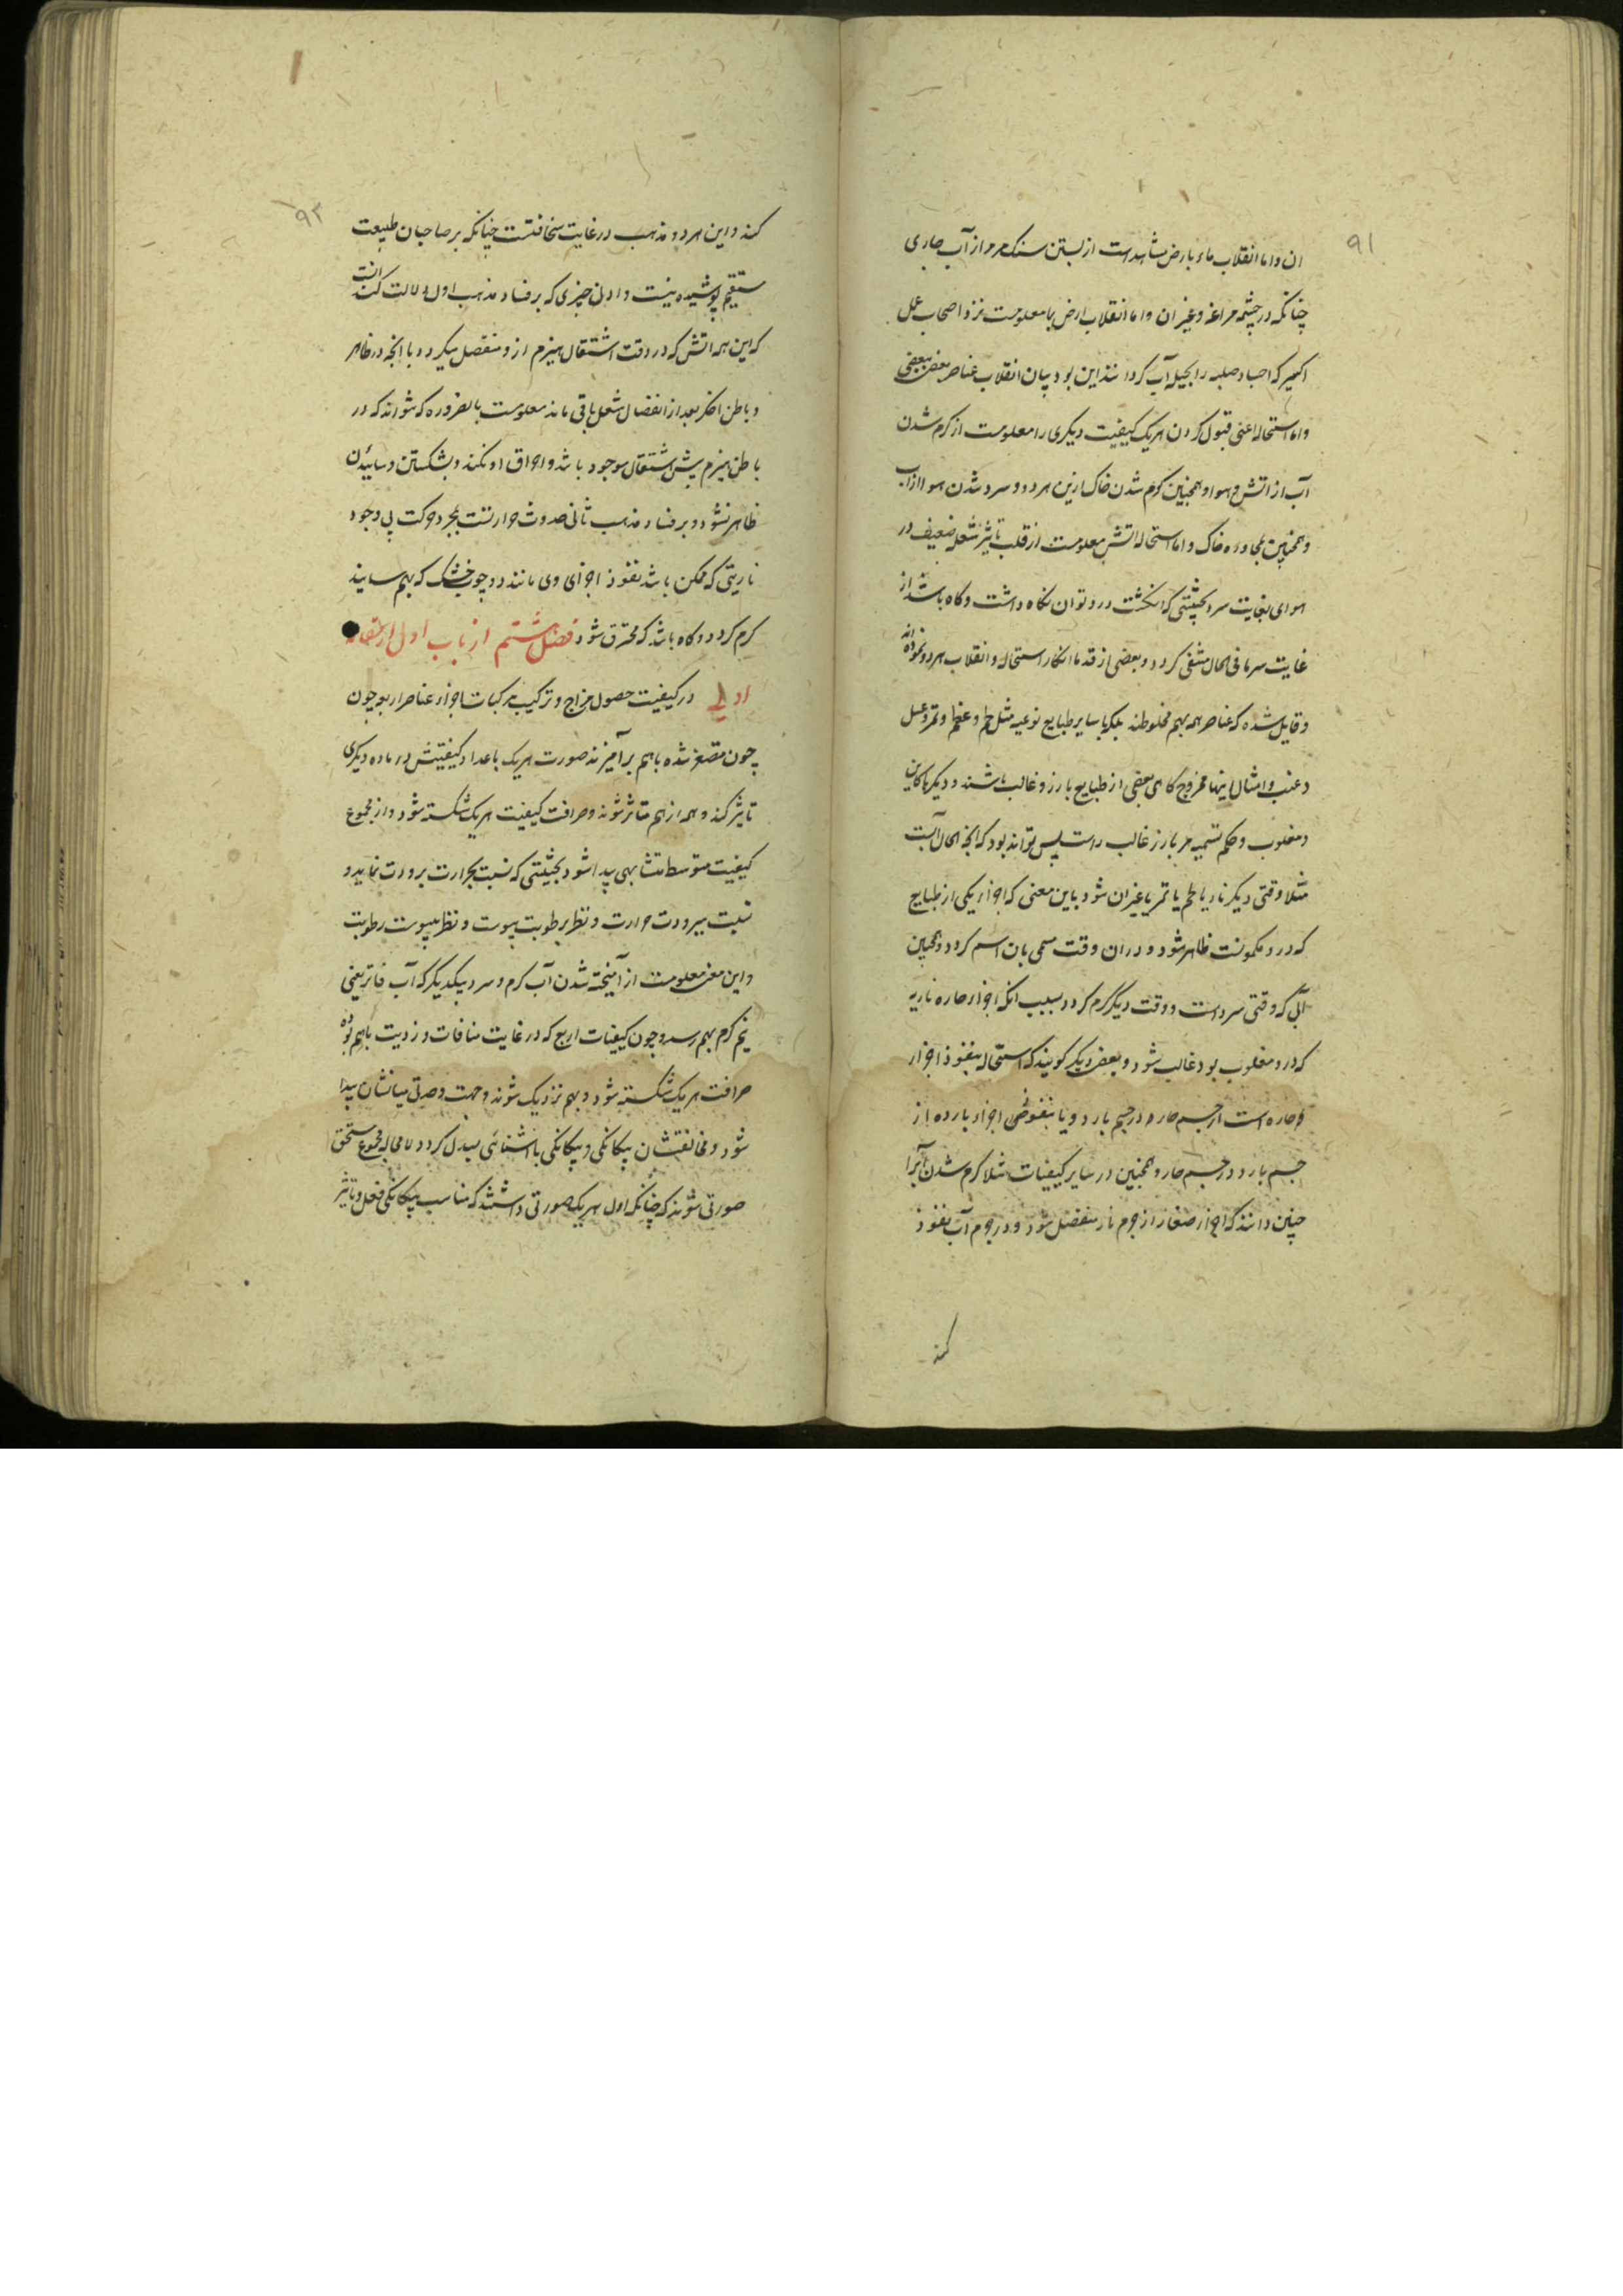 ۹۱
ان و اما انقلاب ماء بارض مشاهدست از بستن سنک مرمر از آب جاری
چنانکه در چشمه مراغه و غیر ان و اما انقلاب ارض بما معلومست نزد اصحاب عمل
اکسیر که اجساد صلبه را بحیله آب کردانند این بود بیان انقلاب عناصر بعضی ببعضی
و اما استحاله اعنی قبول کردن هریک کیفیت دیکری را معلومست از کرم شدن
آب از اتش و هوا و همچنین کرم شدن خاک ازین هردو و سرد شدن هوا از آب
و همچنین بمجاوره خاک و اما استحاله اتش معلومست از قلت تاثیر شعله ضعیف در
هوای بغایت سرد بحیثیتی که انکشت درو توان نکاه داشت و کاه باشد از
غایت سرما فی الحال منتفی کردد و بعضی از قدما انکار استحاله و انقلاب هردو نموده اند
و قایل شده که عناصر همه بهم مخلوطند بلکه با سایر طبایع نوعیه مثل لحم و عظم و تمر و عسل
و عنب و امثال اینها ممزوج کاهی بعضی از طبایع بارز و غالب باشند و دیکرها کامن
و مغلوب و حکم تسمیه مر بارز غالب راست پس تواند بود که انچه الحال آبست
مثلا وقتی دیکر نار یا لحم یا تمر یا غیر ان شود باین معنی که اجزاء یکی از طبایع
که درو مکمونست ظاهر شود و در ان وقت مسمی بان اسم کردد و همچنین
آبی که وقتی سردست و وقت دیکر کرم کردد بسبب انکه اجزاء حاره ناریه
که درو مغلوب بود غالب شود و بعضی دیکر کویند که استحاله بنفوذ اجزاء
حاره است از جسم حار در جسم بارد و یا بنفوذ اجزاء بارده از
جسم بارد در جسم حار و همچنین در سایر کیفیات مثلا کرم شدن آب را
چنین دانند که اجزاء صغار از جرم نار منفصل شود و در جرم آب نفوذ
کند
۹۲
کند و این هردو مذهب در غایت سخافتست چنانکه بر صاحبان طبیعت
مستقیم پوشیده نیست و ادنی چیزی که بر فساد مذهب اول دلالت کند انست
که این همه اتش که در وقت اشتعال هیزم ازو منفصل میکردد با انچه در ظاهر
و باطن اخکر بعد از انفصال شعل باقی ماند معلومست بالضروره که نتواند که در
باطن هیزم پیش اشتعال موجود باشد و احراق او نکند و بشکستن و ساییدن
ظاهر نشود و بر فساد مذهب ثانی حدوث حرارتست بمجرد حرکت بی وجود
ناریتی که ممکن باشد نفوذ اجزای وی مانند دو چوب خشک که بهم سایند
کرم کردد و کاه باشد که محترق شود فصل هشتم از باب اول از مقاله
اولی در کیفیت حصول مزاج و ترکیب مرکبات اجزاء عناصر اربعه چون
چون متصغر شده باهم برآمیزند صورت هریک باعداد کیفیتش در ماده دیکری
تاثیر کند و همه از هم متاثر شوند و صرافت کیفیت هریک شکسته شود و از مجموع
کیفیت متوسط متشابهی پیدا شود بحیثیتی که نسبت بحرارت برودت نماید و
نسبت ببرودت حرارت و نظر برطوبت یبوست و نظر بیبوست رطوبت
و این معنی معلومست از آمیخته شدن آب کرم و سرد بیکدیکر که آب فاتر یعنی
نیم کرم بهم رسد و چون کیفیات اربع که در غایت منافات و ضدیت باهم بوده
صرافت هریک شکسته شود و بهم نزدیک شوند و جهت وحدتی میانشان پیدا
شود و مخالفتشان بیکانکی و بیکانکی باشنائی مبدل کردد لامحاله مجموع مستحق
صورتی شوند که چنانکه اول هریک صورتی داشتند که مناسب بیکانکی فعل و تاثیر